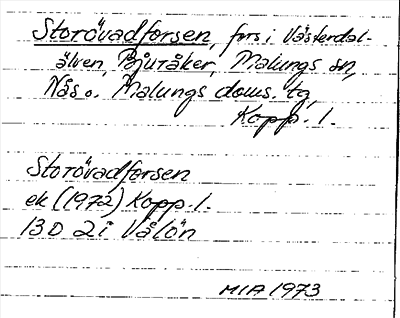 Storövadforsen, fors i Västerdal-
älven, Bjuråker, Malungs sn,
Nås o. Malungs doms. tg,
Kopp. l.
Storövadforsen
ek (1972) Kopp. l.
13D 2i Vålön
MIA 1973